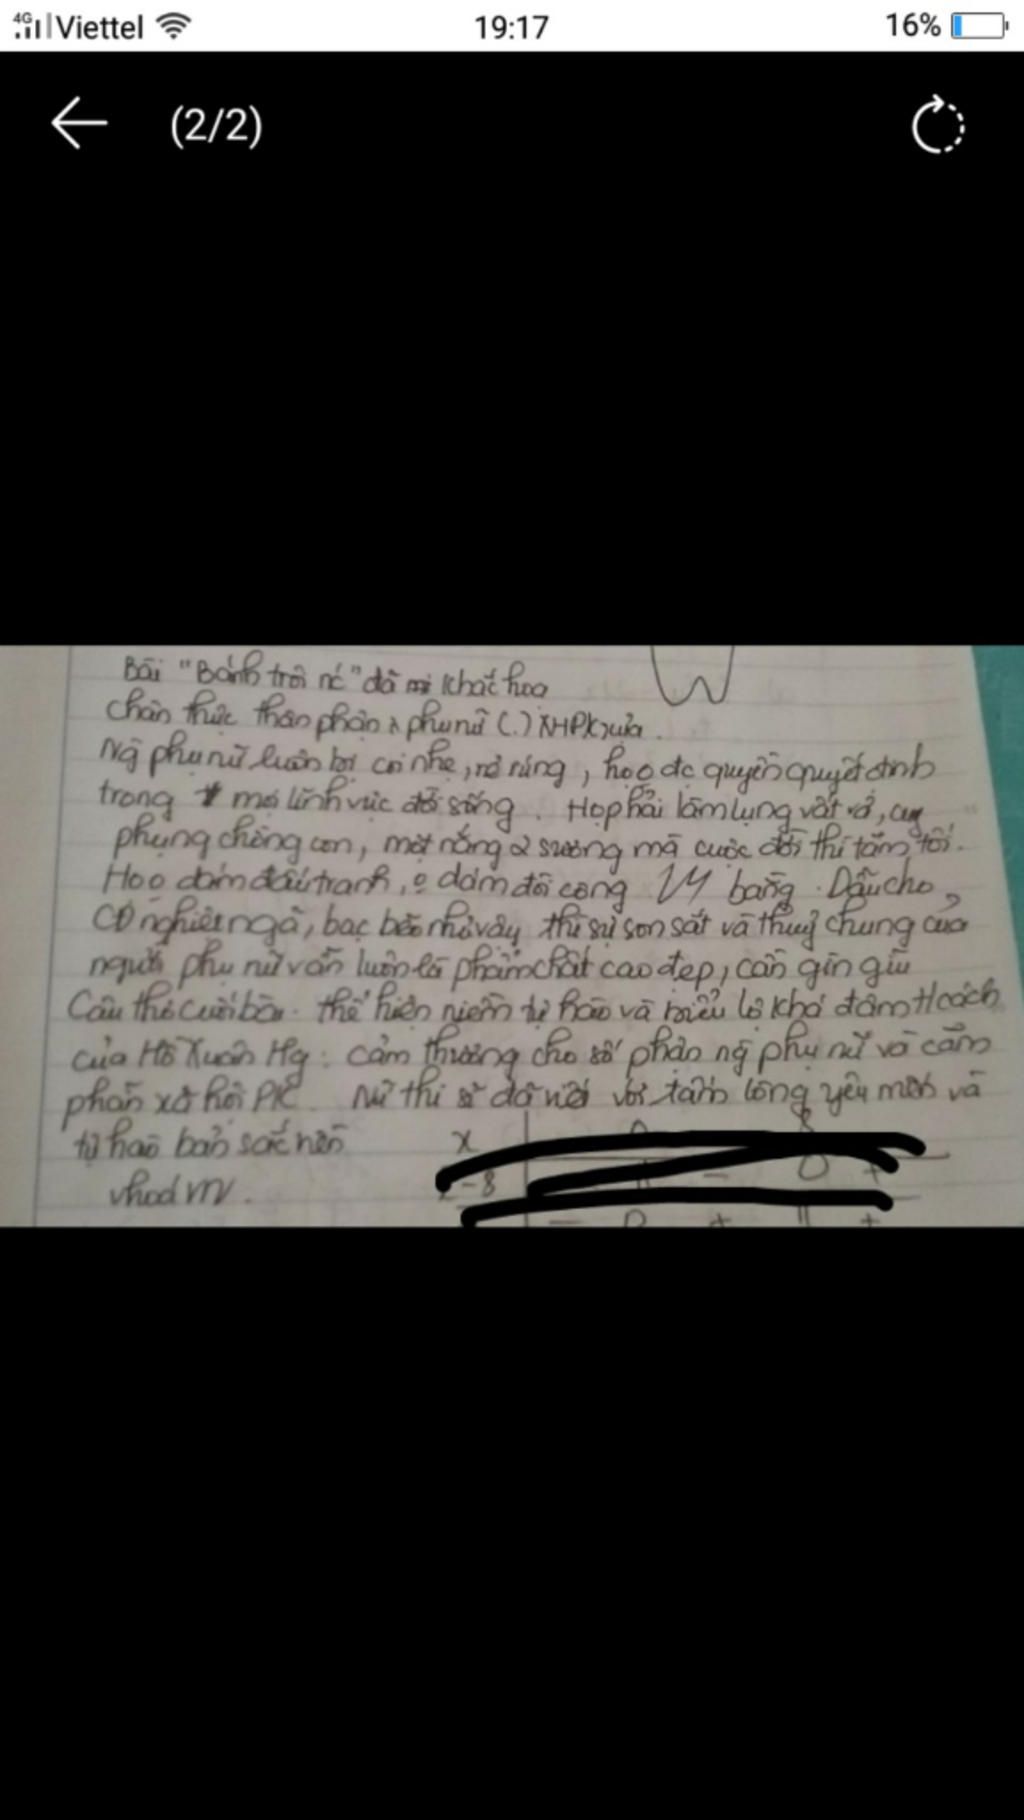 4G Viettel 19:17 16%
(2/2)
Bài "Bánh trôi nc" đã khắc họa
chân thực thân phận phụ nữ (.) XHPK xưa.
Ng phụ nữ luôn bị coi nhẹ, rẻ rúng, họ o đc quyền quyết định
trong mọi lĩnh vực đời sống. Họ phải làm lụng vất vả, cug
phụng chồng con, một nắng 2 sương mà cuộc đời thì tăm tối.
Họ o dám đấu tranh, o dám đòi công bằng. Dẫu cho
CĐ nghiệt ngã, bạc bẽo như vậy thì sự son sắt và thuỷ chung của
người phụ nữ vẫn luôn là phẩm chất cao đẹp, cần gìn giữ
Câu thơ cuối bài. thể hiện niềm tự hào và biểu lộ khá đậm t/cách
của Hồ Xuân Hg: cảm thương cho số phận ng phụ nữ và căm
phẫn xã hội PK. Nữ thi sĩ đã với tấm lòng yêu mến và
tự hào bản sắc nền x
vhoá VN. -8